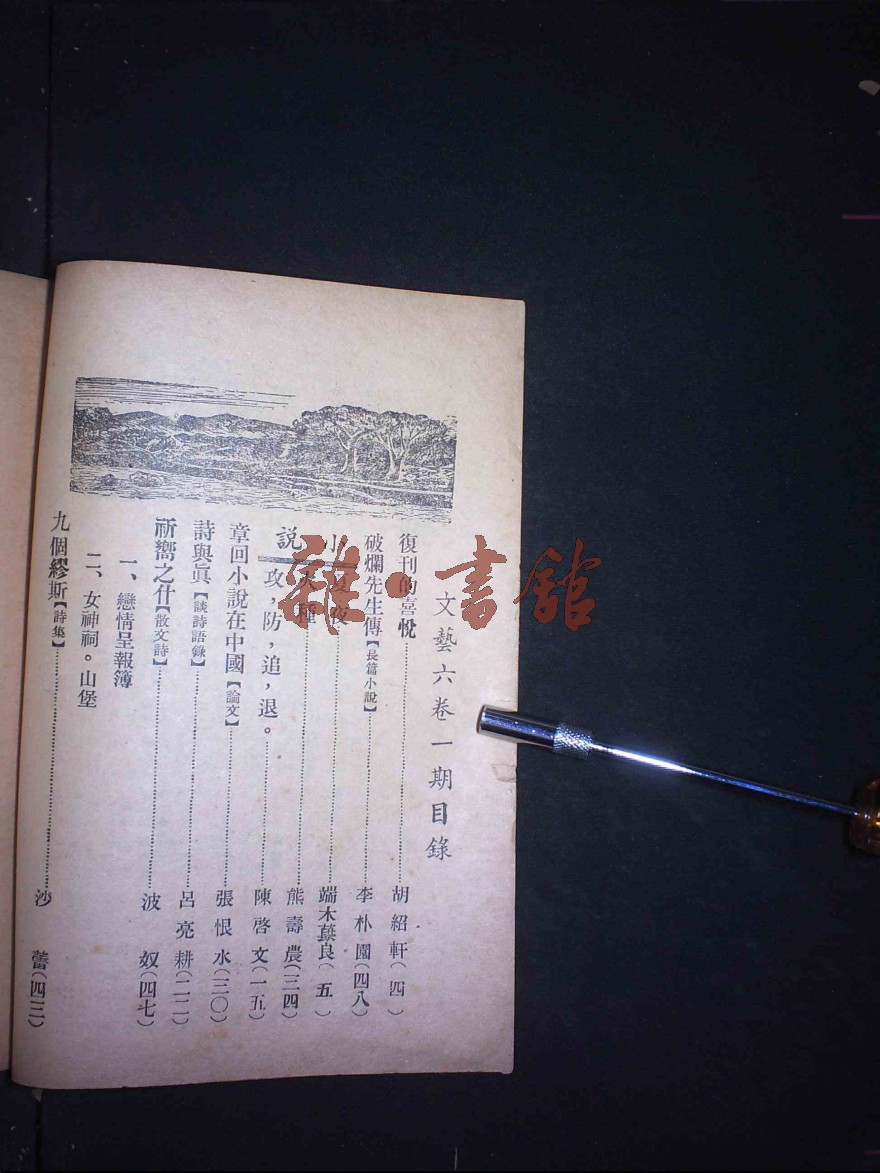 文藝六卷一期目錄
復刊的喜悅……胡紹軒(四)
破爛先生傳【長篇小說】……李朴園(四八)
小說
夏夜……端木蕻良(五)
火種……熊壽農(三四)
攻，防，追，退。……陳啓文(一五)
章回小說在中國【論文】……張恨水(三〇)
詩與眞【談詩語錄】……呂亮耕(二二)
祈嚮之什【散文詩】……波奴(四七)
一、戀情呈報簿
二、女神祠。山堡
九個繆斯【詩集】……沙蕾(四三)
雜·書館